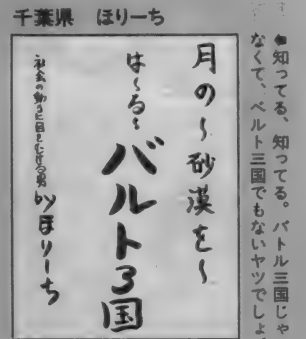 千葉県 ほりーち
月の〜砂漠を〜
は〜る〜バルト3国
社会の動きに目をむける男 byほりーち
●知ってる、知ってる。バトル三国じゃ
なくて、ベルト三国でもないヤツでしょ